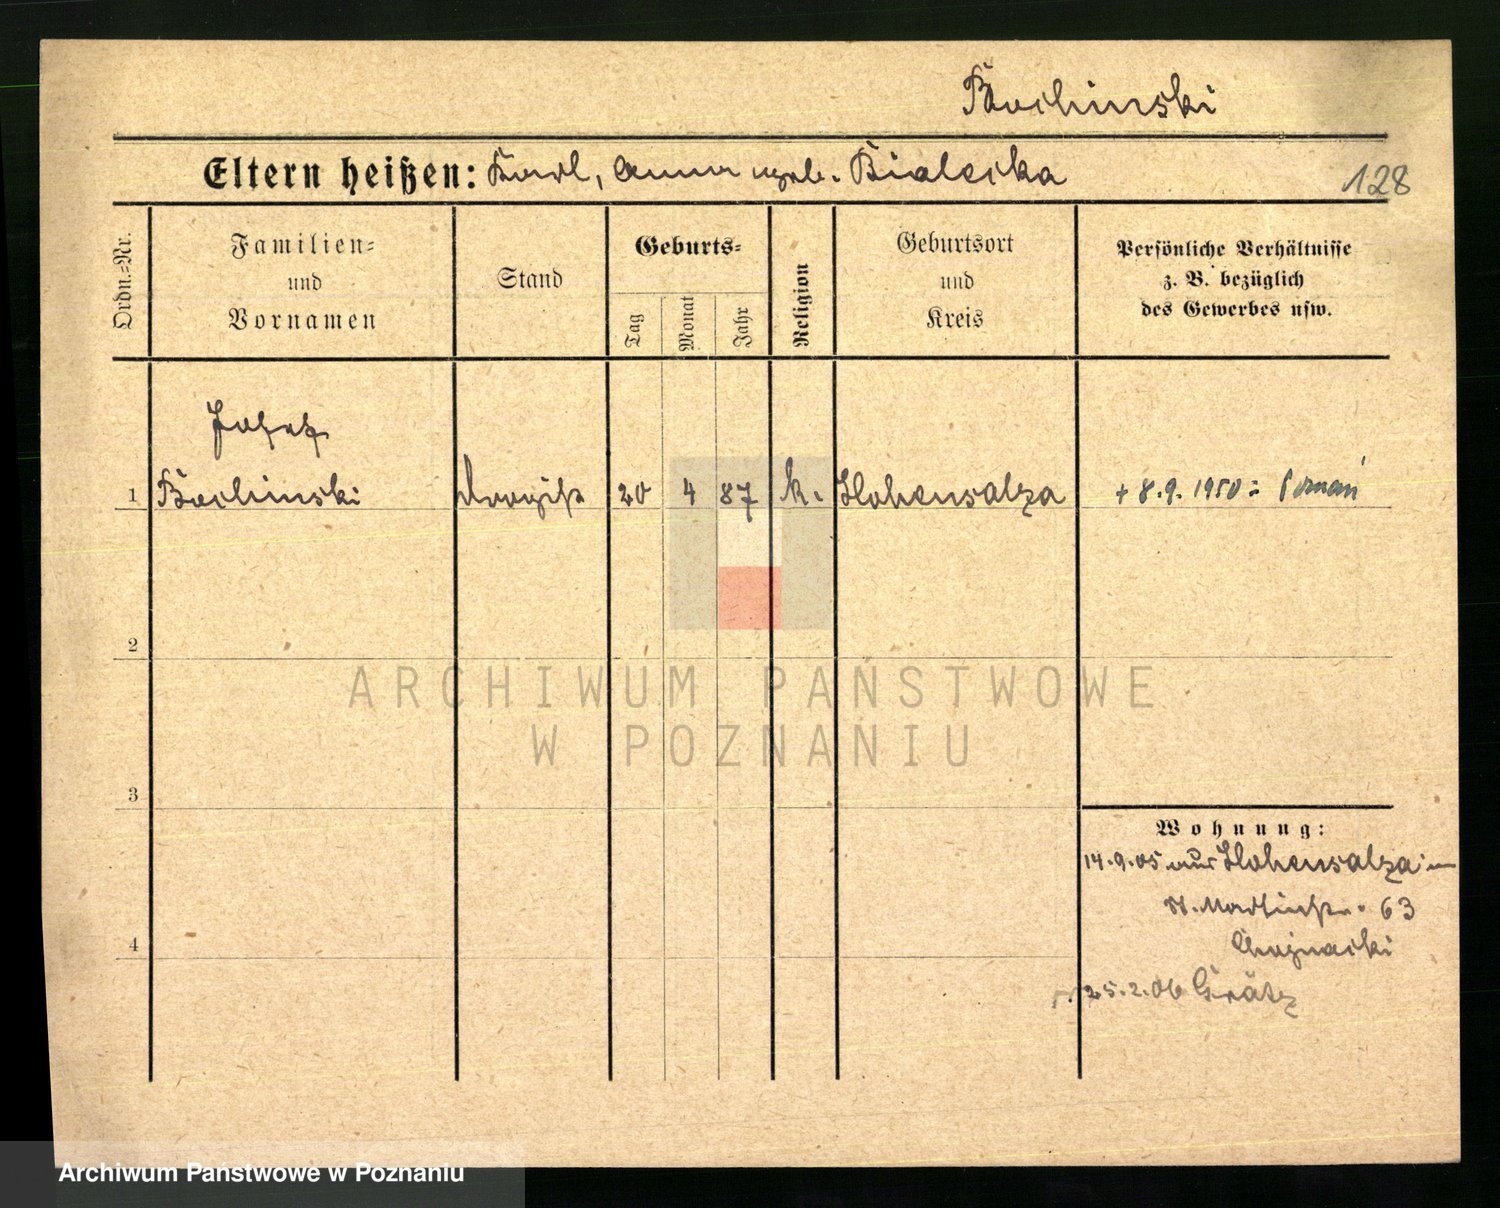 Bochinski
Eltern heißen: Karl, Anna geb. Bialecka
128
Ordn.=Nr.
Familien=
und
Vornamen
Stand
Geburts=
Tag
Monat
Jahr
Religion
Geburtsort
und
Kreis
Persönliche Verhältnisse
z. B. bezüglich
des Gewerbes usw.
Josef
1 Bochinski Drogist 20 4 87 k. Hohensalza + 8.9.1950 = Poznań
2
3
4
Wohnung:
14.9.05 aus Hohensalza
St. Martinstr. 63
Chojnacki
25.2.06 Grätz
ARCHIWUM PAŃSTWOWE
W POZNANIU
Archiwum Państwowe w Poznaniu